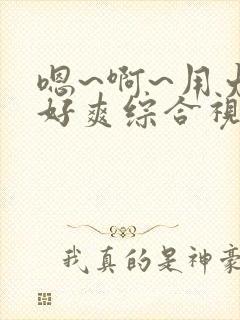 嗯~啊~用大
好爽综合视
我真的是神豪